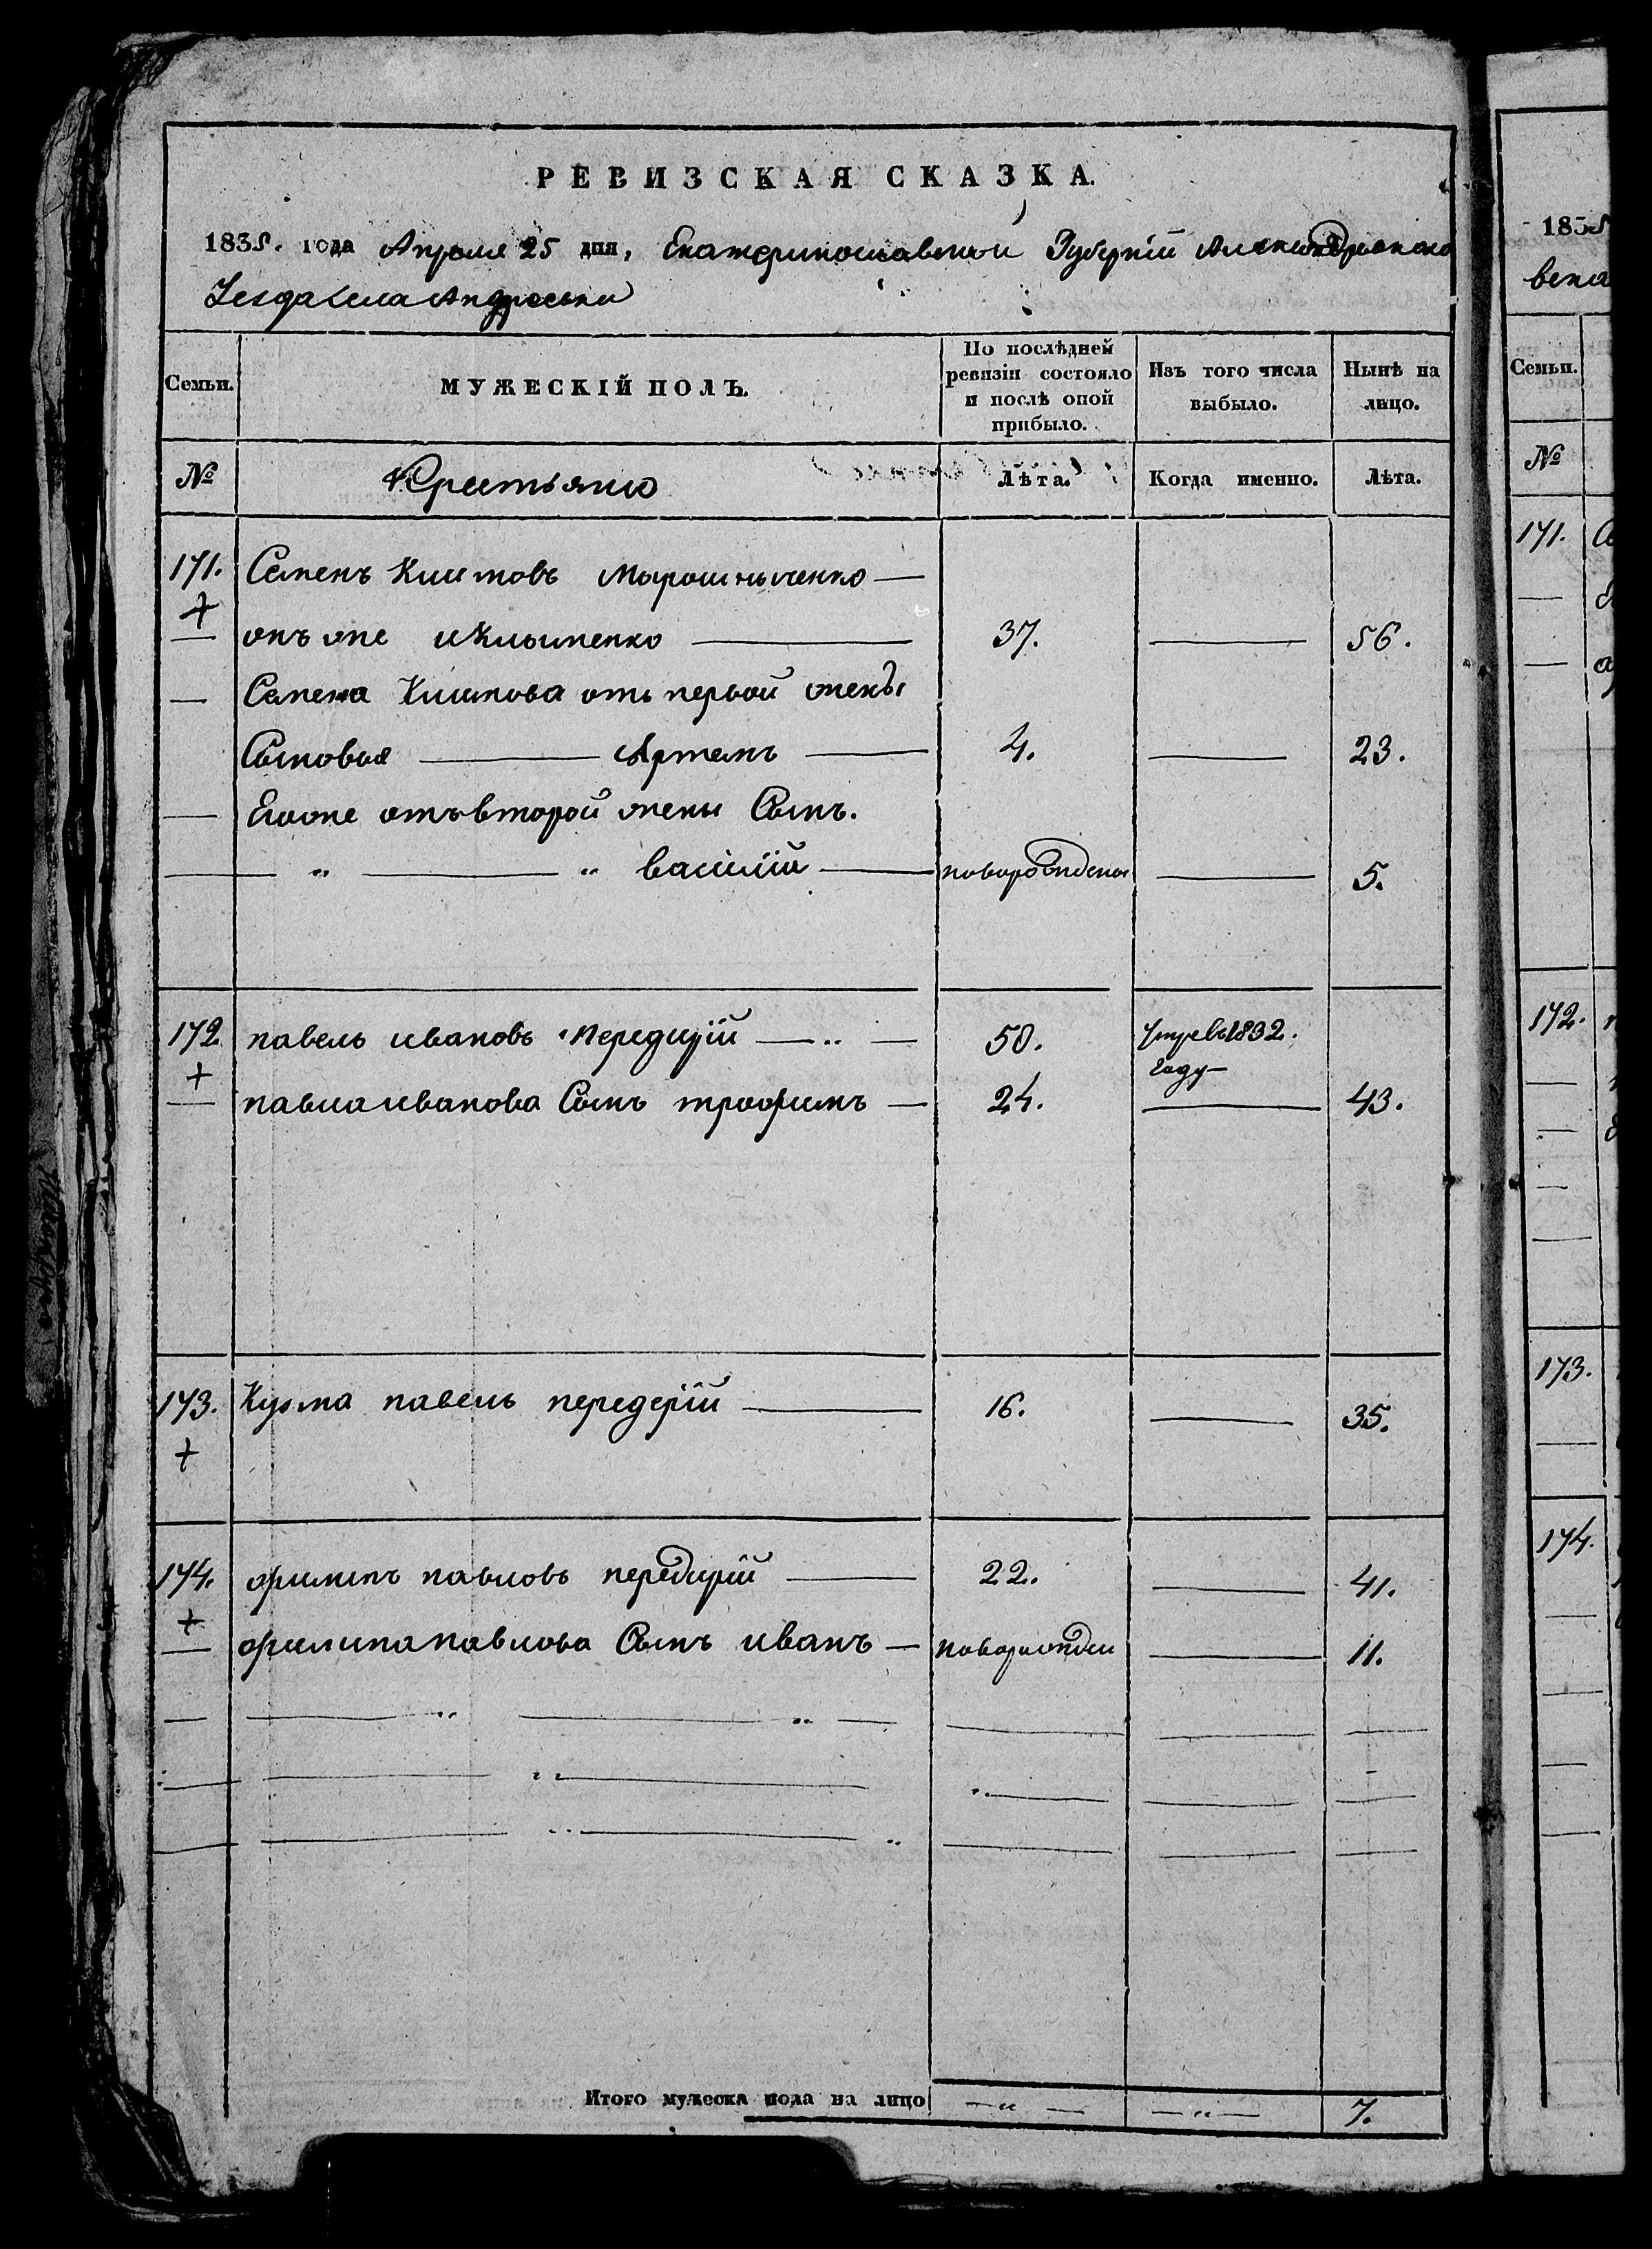 РЕВИЗСКАЯ СКАЗКА.
1835. года Апреля 25 дня, Екатеринославской Губернїи Александрійского
Уезда села Андреевки
Семьи.
МУЖЕСКІЙ ПОЛЪ.
По послѣдней ревизіи состояло и послѣ оной прибыло.
Изъ того числа выбыло.
Нынѣ на лицо.
№
Крестьяне
Лѣта.
Когда именно.
Лѣта.
171. Семенъ Климовъ Мырошныченко
онъ же и Клыменко 37. 56.
Семена Климова отъ первой жены
Сыновья Артемъ 4. 23.
Егоже отъ второй жены Сынъ.
" " василий новорожденъ 5.
172 павелъ ивановъ передирїй 50. умре в 1832. году
павла иванова Сынъ трофимъ 24. 43.
173. Кузма павелъ передерїй 16. 35.
174. филипъ павловъ передирїй 22. 41.
филипа павлова Сынъ иванъ новорожден 11.
Итого мужеска пола на лицо 7.
1835
вска
Семьи.
№
171.
172.
173.
174.